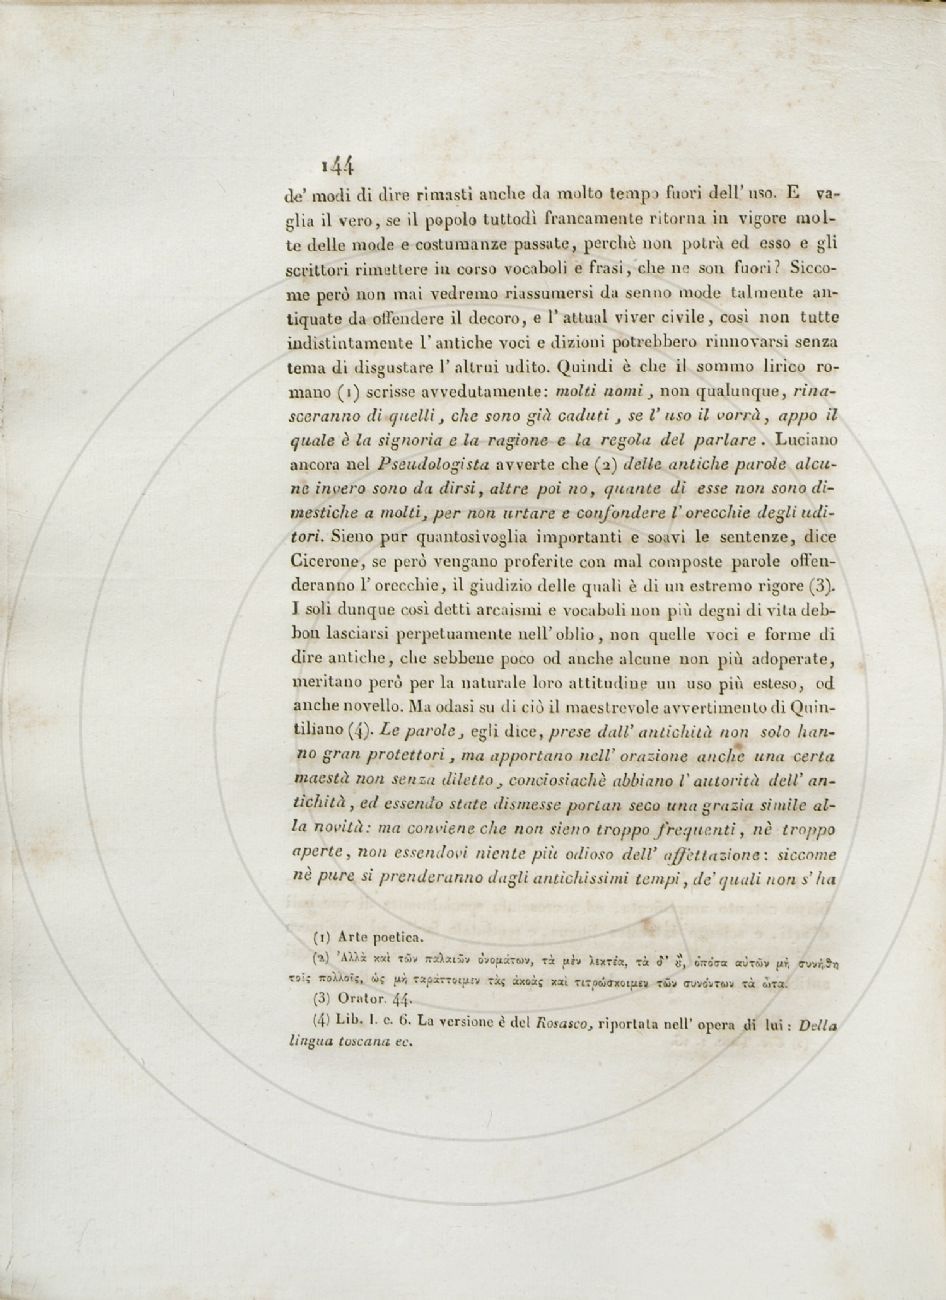 144
de' modi di dire rimasti anche da molto tempo fuori dell' uso. E va-
glia il vero, se il popolo tuttodì francamente ritorna in vigore mol-
te delle mode e costumanze passate, perchè non potrà ed esso e gli
scrittori rimettere in corso vocaboli e frasi, che ne son fuori? Sicco-
me però non mai vedremo riassumersi da senno mode talmente an-
tiquate da offendere il decoro, e l' attual viver civile, così non tutte
indistintamente l' antiche voci e dizioni potrebbero rinnovarsi senza
tema di disgustare l' altrui udito. Quindi è che il sommo lirico ro-
mano (1) scrisse avvedutamente: molti nomi, non qualunque, rina-
sceranno di quelli, che sono già caduti, se l' uso il vorrà, appo il
quale è la signoria e la ragione e la regola del parlare. Luciano
ancora nel Pseudologista avverte che (2) delle antiche parole alcu-
ne invero sono da dirsi, altre poi no, quante di esse non sono di-
mestiche a molti, per non urtare e confondere l' orecchie degli udi-
tori. Sieno pur quantosivoglia importanti e soavi le sentenze, dice
Cicerone, se però vengano proferite con mal composte parole offen-
deranno l' orecchie, il giudizio delle quali è di un estremo rigore (3).
I soli dunque così detti arcaismi e vocaboli non più degni di vita deb-
bon lasciarsi perpetuamente nell' oblio, non quelle voci e forme di
dire antiche, che sebbene poco od anche alcune non più adoperate,
meritano però per la naturale loro attitudine un uso più esteso, od
anche novello. Ma odasi su di ciò il maestrevole avvertimento di Quin-
tiliano (4). Le parole, egli dice, prese dall' antichità non solo han-
no gran protettori, ma apportano nell' orazione anche una certa
maestà non senza diletto, conciosiachè abbiano l' autorità dell' an-
tichità, ed essendo state dismesse portan seco una grazia simile al-
la novità: ma conviene che non sieno troppo frequenti, nè troppo
aperte, non essendovi niente più odioso dell' affettazione: siccome
nè pure si prenderanno dagli antichissimi tempi, de' quali non s' ha
(1) Arte poetica.
(2) Ἀλλὰ καὶ τῶν παλαιῶν ὀνομάτων, τὰ μὲν λεκτέα, τὰ δ' ȣ̓, ὁπόσα αὐτῶν μὴ συνήθη
τοῖς πολλοῖς, ὡς μὴ ταράττοιμεν τὰς ἀκοὰς καὶ τιτρώσκοιμεν τῶν συνόντων τὰ ὦτα.
(3) Orator. 44.
(4) Lib. I. c. 6. La versione è del Rosasco, riportata nell' opera di lui: Della
lingua toscana ec.